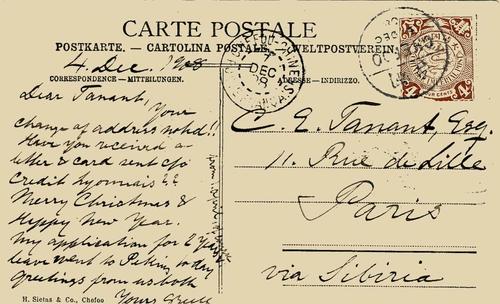 CARTE POSTALE
POSTKARTE. — CARTOLINA POSTALE. — WELTPOSTVEREIN.
CORRESPONDENCE — MITTEILUNGEN.
ADRESSE — INDIRIZZO.
4 Dec. 1908
Dear Tanant,
Your
change of address noted!!
Have you received a
letter & card sent c/o
Credit Lyonnais??
Merry Christmas &
Happy New Year.
My application for 2 years
leave went to Peking to-day
Greetings from us both
Yours
H. Sietas & Co., Chefoo
C. E. Tanant, Esq.
11. Rue de Lille
Paris
via Sibiria
DEC
FOUR CENTS